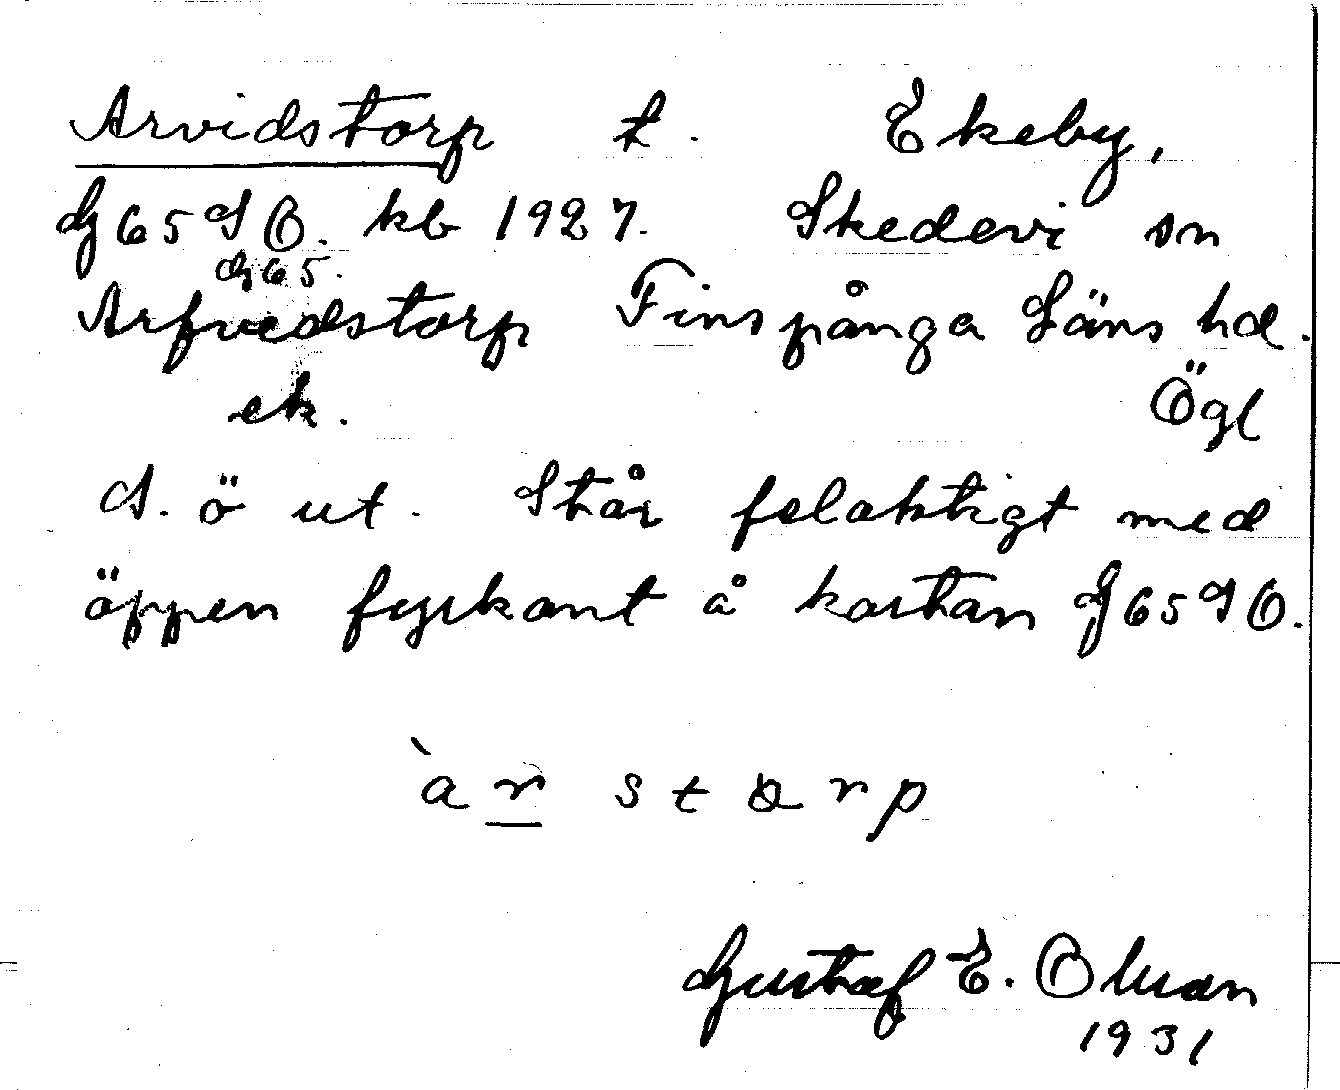 Arvidstorp t. Ekeby,
G65SO. kb 1927. Skedevi sn
G65.
Arfvedstorp Finspånga Läns hd.
ek. Ögl
S. ö ut. Står felaktigt med
öppen fyrkant å kartan G65SO.
àrstorp
Gustaf E. Olsson
1931